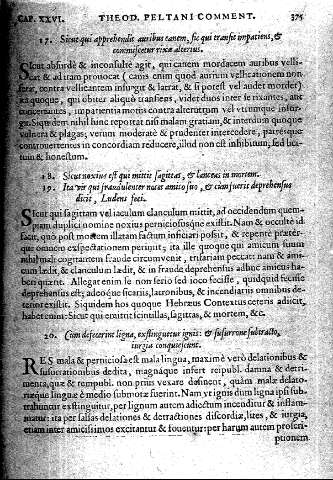 CAP. XXVI. THEOD. PELTANI COMMENT. 375
17. Sicut qui apprehendit auribus canem, sic qui transit impatiens, &
commiscetur rixæ alterius.
Sicut absurdè & inconsultè agit, qui canem mordacem auribus velli-
cat & ad iram prouocat (canis enim quod aurium vellicationem non
ferat, contra vellicantem insurgit & latrat, & si potest vel audet mordet)
ita quoque, qui obiter aliquò transiens, videt duos inter se rixantes, aut
concertantes, impatientia motus contra alterutrum vel vtrumque insur-
git. Siquidem nihil hinc reportat nisi malam gratiam, & interdum quoque
vulnera & plagas; verum moderatè & prudenter intercedere, partesque
controuertentes in concordiam reducere, illud non est inhibitum, sed lici-
tum & honestum.
18. Sicut noxius est qui mittit sagittas, & lanceas in mortem.
19. Ita vir qui fraudulenter nocet amico suo, & cum fuerit deprehensus
dicit, Ludens feci.
Sicut qui sagittam vel iaculum clanculum mittit, ad occidendum quem-
piam duplici nomine noxius perniciosusque existit. Nam & occultè id
facit, quò post mortem illatam factum inficiari possit, & repentè præter-
que omnem exspectationem perimit; ita ille quoque qui amicum suum
nihil mali cogitantem fraude circumuenit, trifariam peccat: nam & ami-
cum lædit, & clanculum lædit, & in fraude deprehensus adhuc amicus ha-
beri quærit. Allegat enim se non serio sed ioco fecisse, quidquid fecisse
deprehensus est; adeoque sicariis, latronibus, & incendiariis omnibus de-
terior existit. Siquidem hos quoque Hebræus Contextus ceteris adiicit,
habet enim: Sicut qui emittit scintillas, sagittas, & mortem, &c.
20. Cùm defecerint ligna, exstinguetur ignis: & susurrone subtracto,
iurgia conquiescent.
RES mala & perniciosa est mala lingua, maximè verò delationibus &
susurrationibus dedita, magnáque infert reipubl. damna & detri-
menta, quæ & rempubl. non prius vexare desinent, quàm malæ delato-
riæque linguæ è medio submotæ fuerint. Nam vt ignis dum ligna ipsi sub-
trahuntur exstinguitur, per lignum autem adiectum incenditur & inflam-
matur: ita per falsas delationes & detractiones discordiæ, lites, & iurgia,
etiam inter amicissimos excitantur & fouentur: per harum autem proscri-
ptionem